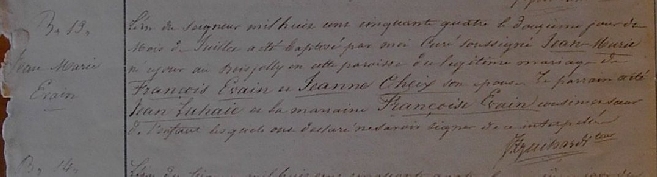 B. 13.
Jean Marie
Evain
L'an du Seigneur mil huit cent cinquante quatre le douzième jour du
Mois de Juillet a été baptisé par moi Curé soussigné Jean Marie
né ce jour au en cette paroisse du légitime mariage de
François Evain et Jeanne Cheix son épouse. Le parrain a été
Jean Luhaie et la marraine Françoise Evain cousine
de l'enfant lesquels ont déclaré ne savoir signer de ce interpellés
B. 14.
L'an du mil huit cent cinquante quatre le